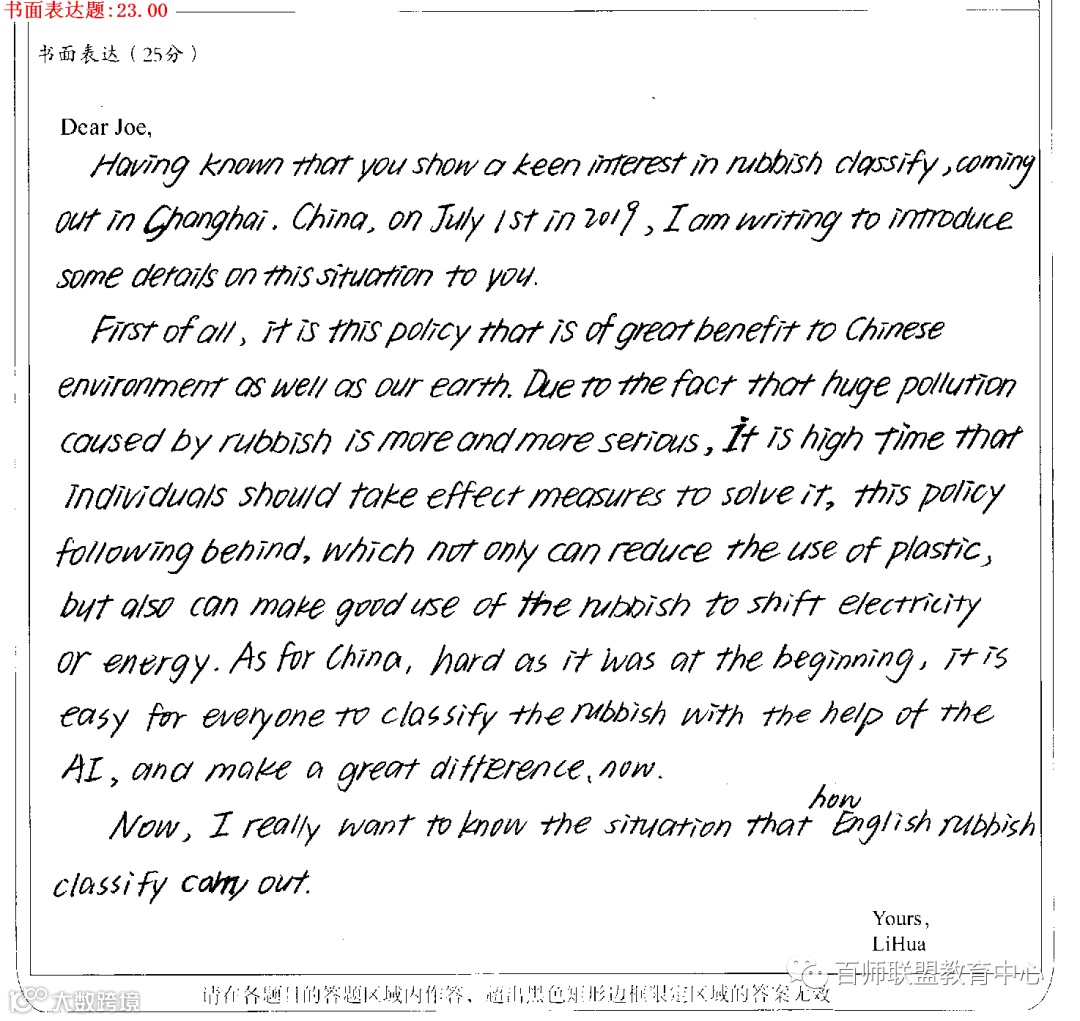 书面表达题:23.00
书面表达（25分）
Dear Joe,
Having known that you show a keen interest in rubbish classify, coming
out in Changhai. China, on July 1st in 2019, I am writing to introduce
some details on this situation to you.
First of all, it is this policy that is of great benefit to Chinese
environment as well as our earth. Due to the fact that huge pollution
caused by rubbish is more and more serious, It is high time that
individuals should take effect measures to solve it, this policy
following behind, which not only can reduce the use of plastic,
but also can make good use of the rubbish to shift electricity
or energy. As for China, hard as it was at the beginning, it is
easy for everyone to classify the rubbish with the help of the
AI, and make a great difference, now.
how
Now, I really want to know the situation that English rubbish
classify carry out.
Yours,
LiHua
百师联盟教育中心
大数跨境
请在各题目的答题区域内作答，超出黑色矩形边框限定区域的答案无效